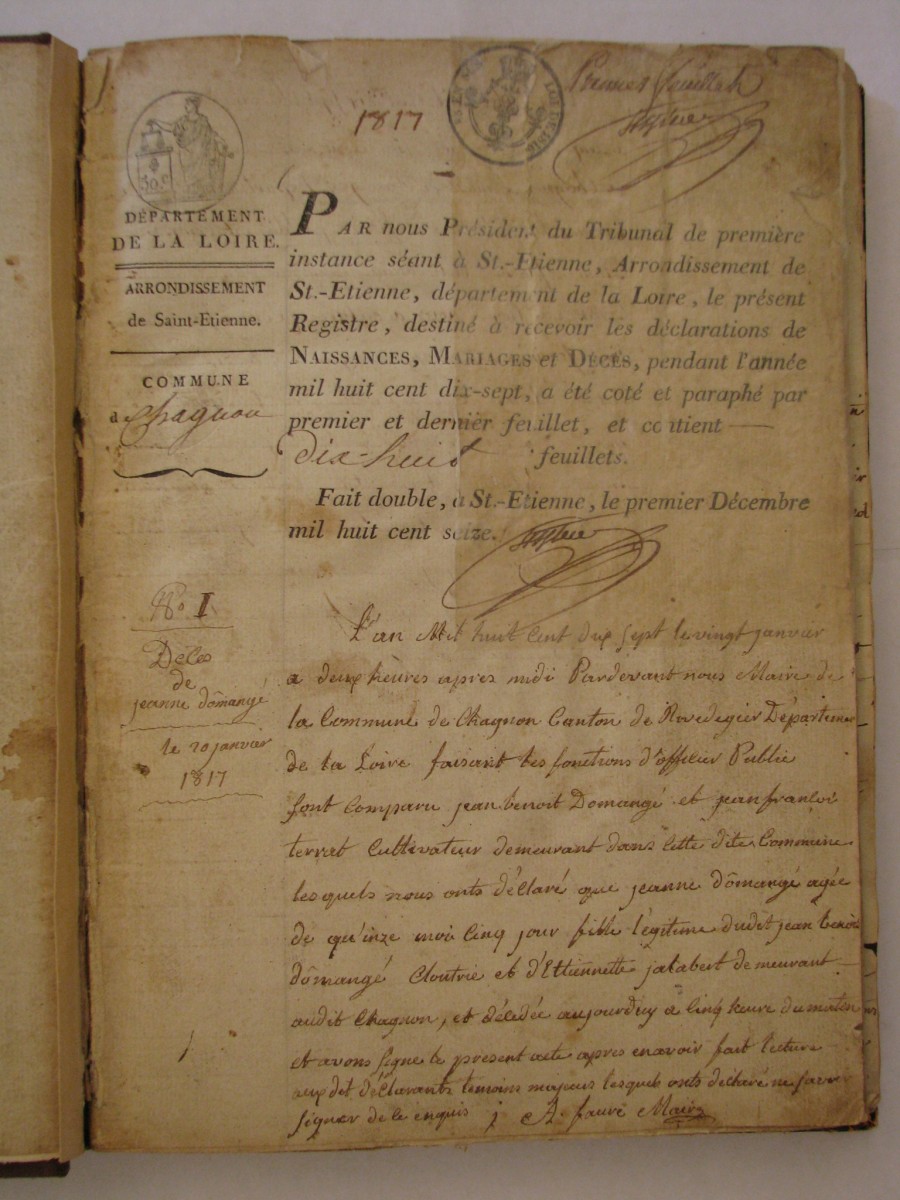 1817
Premier feuillet
50.c
DÉPARTEMENT
DE LA LOIRE.
ARRONDISSEMENT
de Saint-Etienne.
COMMUNE
de Chagnon
PAR nous Président du Tribunal de première
instance séant à St.-Etienne, Arrondissement de
St.-Etienne, département de la Loire, le présent
Registre, destiné à recevoir les déclarations de
NAISSANCES, MARIAGES et DÉCÈS, pendant l'année
mil huit cent dix-sept, a été coté et paraphé par
premier et dernier feuillet, et contient
dix-huit feuillets.
Fait double, à St.-Etienne, le premier Décembre
mil huit cent seize.
No. I
Déces
de
jeanne dômangé
le 20 janvier
1817
L'an Mil huit Cent dix sept le vingt janvier
a deux hèures apres midi Pardevant nous Maire de
la Commune de Chagnon Canton de Rivedegier Départemen
de la Loire faisant les fonctions d'officier Public
sont Comparu jean benoit Domangé et jean françoi
terrat Cultivateur demeurant dans Cette dite Commune
lesquels nous onts déclaré que jeanne dômangé agée
de qu'inze moi Cinq jour fille légitime dudit jean benoit
dômangé Cloutrie et d'Ettiennette jalabert demeurant
audit Chagnon, et décedée aujourdhuy à Cinq heure du matin
et avons signé le present acte apres en avoir fait lecture
aux dit déclarants temoins majeurs lesquels onts declaré ne savoir
signer de ce enquis j A. fauré Maire